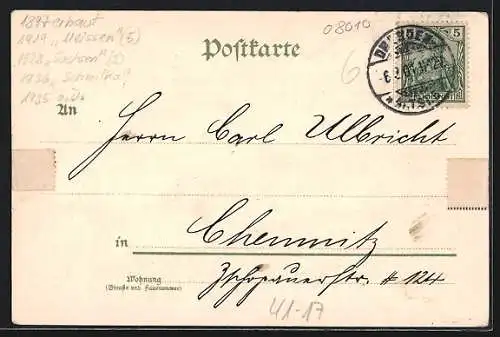 1897 erbaut
1919 „Meissen" (5)
1928 „Sachsen" (2)
1936 „Schmilka"
1935
08010
6
Postkarte
DRESDEN
5
An
Herrn Carl Ulbricht
in Chemnitz
Wohnung
(Straße und Hausnummer)
Zschopauerstr. # 124
41-17